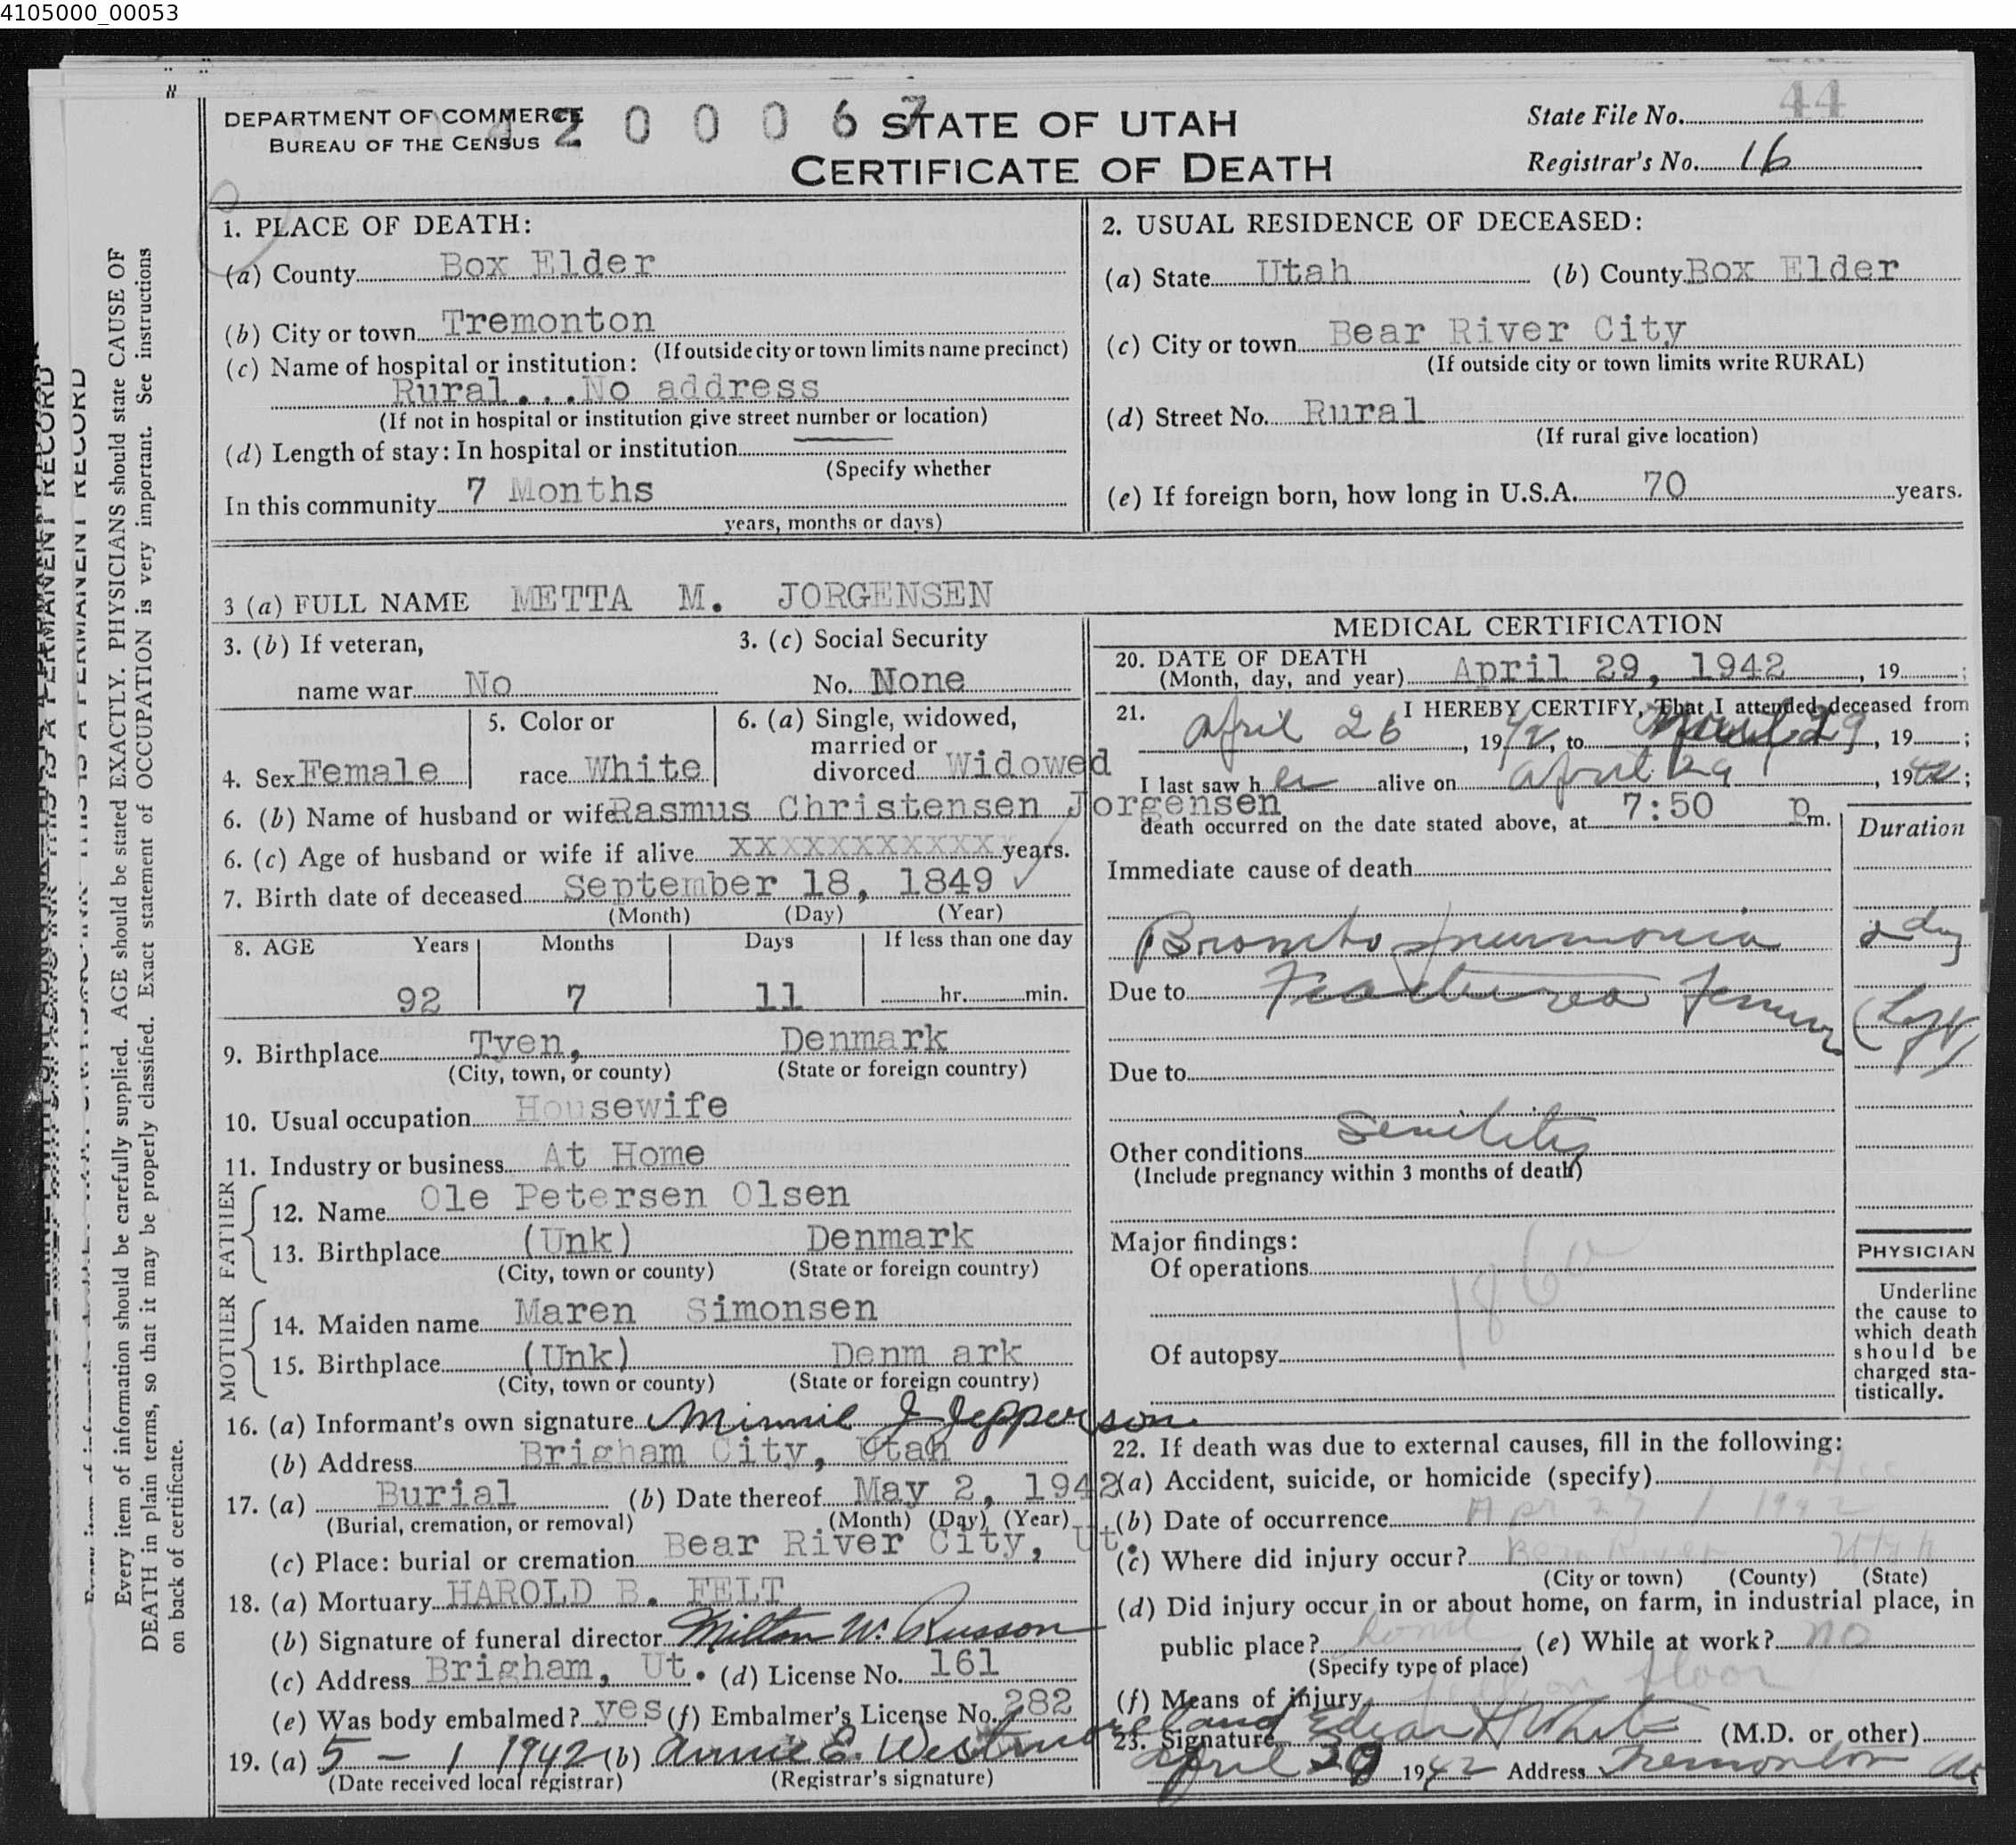 4105000_00053
DEPARTMENT OF COMMERCE
BUREAU OF THE CENSUS
2 0 0 0 6 7
STATE OF UTAH
CERTIFICATE OF DEATH
State File No. 44
Registrar's No. 16
1. PLACE OF DEATH:
(a) County Box Elder
(b) City or town Tremonton
(If outside city or town limits name precinct)
(c) Name of hospital or institution:
Rural...No address
(If not in hospital or institution give street number or location)
(d) Length of stay: In hospital or institution
(Specify whether
In this community 7 Months
years, months or days)
2. USUAL RESIDENCE OF DECEASED:
(a) State Utah (b) County Box Elder
(c) City or town Bear River City
(If outside city or town limits write RURAL)
(d) Street No. Rural
(If rural give location)
(e) If foreign born, how long in U.S.A. 70 years.
3 (a) FULL NAME METTA M. JORGENSEN
3. (b) If veteran,
name war No
3. (c) Social Security
No. None
4. Sex Female
5. Color or
race White
6. (a) Single, widowed,
married or
divorced Widowed
6. (b) Name of husband or wife Rasmus Christensen Jorgensen
6. (c) Age of husband or wife if alive XXXXXXXXXXXX years.
7. Birth date of deceased September 18, 1849
(Month) (Day) (Year)
8. AGE Years Months Days If less than one day
92 7 11 hr. min.
9. Birthplace Tyen, Denmark
(City, town, or county) (State or foreign country)
10. Usual occupation Housewife
11. Industry or business At Home
FATHER
12. Name Ole Petersen Olsen
13. Birthplace (Unk) Denmark
(City, town or county) (State or foreign country)
MOTHER
14. Maiden name Maren Simonsen
15. Birthplace (Unk) Denm ark
(City, town or county) (State or foreign country)
16. (a) Informant's own signature Minnie J Jepperson
(b) Address Brigham City, Utah
17. (a) Burial (b) Date thereof May 2, 1942
(Burial, cremation, or removal) (Month) (Day) (Year)
(c) Place: burial or cremation Bear River City, Ut.
18. (a) Mortuary HAROLD B. FELT
(b) Signature of funeral director Milton W. Russon
(c) Address Brigham, Ut. (d) License No. 161
(e) Was body embalmed? yes (f) Embalmer's License No. 282
19. (a) 5 - 1 1942 (b) Annie E. Westmoreland
(Date received local registrar) (Registrar's signature)
MEDICAL CERTIFICATION
20. DATE OF DEATH
(Month, day, and year) April 29, 1942, 19 ;
21. I HEREBY CERTIFY, That I attended deceased from
April 26, 1942, to April 29, 19 ;
I last saw her alive on April 29, 1942;
death occurred on the date stated above, at 7:50 p m.
Duration
Immediate cause of death
Broncho pneumonia 2 day
Due to Fractured Femur (Left)
Due to
Other conditions Senility
(Include pregnancy within 3 months of death)
Major findings:
Of operations
186
Of autopsy
PHYSICIAN
Underline
the cause to
which death
should be
charged sta-
tistically.
22. If death was due to external causes, fill in the following:
(a) Accident, suicide, or homicide (specify) Acc
(b) Date of occurrence Apr 27 / 1942
(c) Where did injury occur? Bear River Utah
(City or town) (County) (State)
(d) Did injury occur in or about home, on farm, in industrial place, in
public place? home (e) While at work? no
(Specify type of place)
(f) Means of injury fell on floor
23. Signature Edgar H White (M.D. or other)
April 29 1942 Address Tremonton Ut
Every item of information should be carefully supplied. AGE should be stated EXACTLY. PHYSICIANS should state CAUSE OF
DEATH in plain terms, so that it may be properly classified. Exact statement of OCCUPATION is very important. See instructions
on back of certificate.